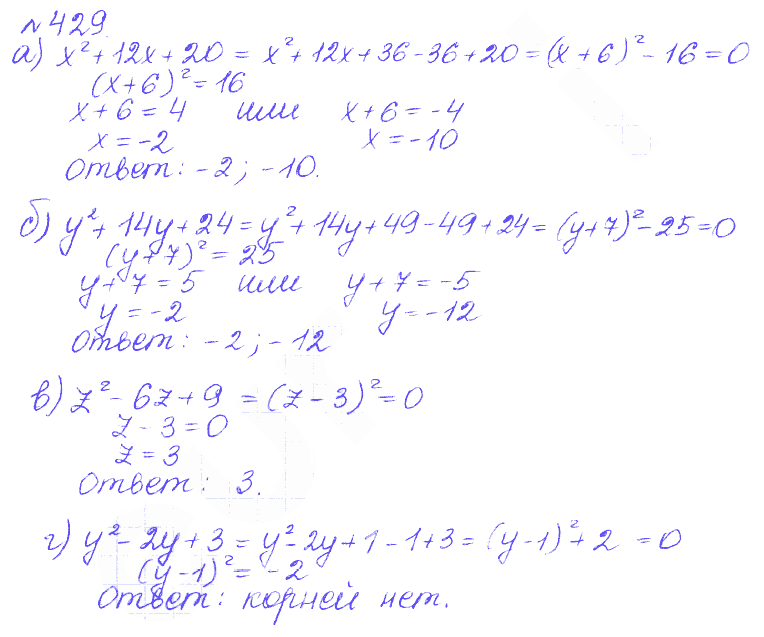 №429.
а) x² + 12x + 20 = x² + 12x + 36 - 36 + 20 = (x + 6)² - 16 = 0
(x + 6)² = 16
x + 6 = 4 или x + 6 = -4
x = -2 x = -10
Ответ: -2; -10.
б) y² + 14y + 24 = y² + 14y + 49 - 49 + 24 = (y + 7)² - 25 = 0
(y + 7)² = 25
y + 7 = 5 или y + 7 = -5
y = -2 y = -12
Ответ: -2; -12
в) z² - 6z + 9 = (z - 3)² = 0
z - 3 = 0
z = 3
Ответ: 3.
г) y² - 2y + 3 = y² - 2y + 1 - 1 + 3 = (y - 1)² + 2 = 0
(y - 1)² = -2
Ответ: корней нет.